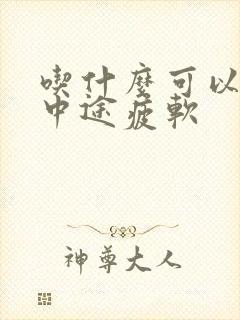 喫什麼可以
中途疲軟
神尊大人